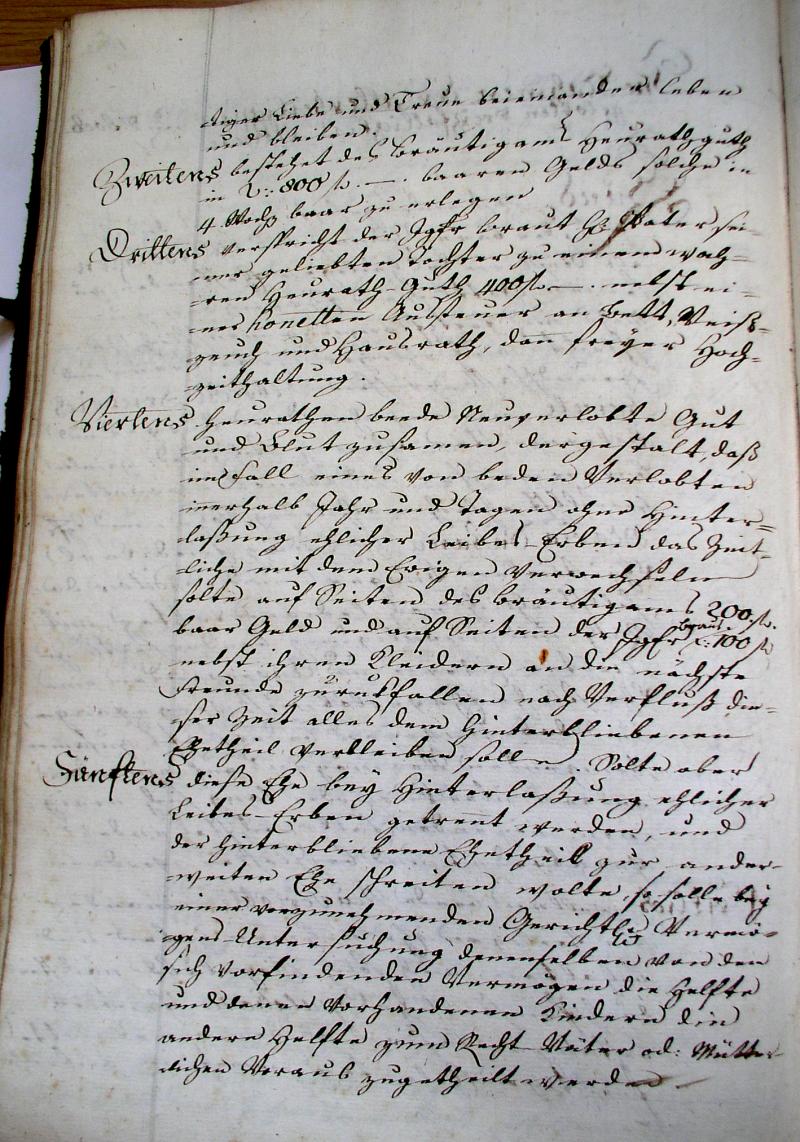 diger Liebe und Treue beieinander leben
und bleiben.
Zweitens bestehet des Bräutigams Heurathguth
in 800 fl. —. baaren Gelds solche in
4 Woch baar zu erlegen
Drittens verspricht der Jgfr braut H: Vater sei-
ner geliebten Tochter zu einem wah=
=ren Heurath-Guth 400 fl —. nebst ei=
ner honetten Aussteuer an Bett, Weiß=
zeuch und Hausrath, dan freyer Hoch=
zeithaltung.
Viertens Heurathen beede Neuverlobte Gut
und Blut zusamen, dergestalt, daß
im fall eines von beden Verlobten
inerhalb Jahr und Tagen ohne Hinter=
laßung ehlicher Leibes-Erben das Zeit=
liche mit dem Ewigen verwechseln
solte auf Seiten des Bräutigams 200. fl.
baar Geld und auf Seiten der Jgfr braut 100 fl
nebst ihren Kleidern an die nächste
Freunde zurukfallen nach Verfluß die=
ser Zeit alles dem Hinterbliebenen
Ehetheil verbleiben solle. Solte aber
Fünftens diese Ehe bey Hinterlaßung ehlicher
Leibes-Erben getrent werden, und
der hinterbliebene Ehetheil zur ander=
=weiten Ehe schreiten wolte, so solle bey
einer vorzunehmenden Gerichtl: Vermö=
gens-Untersuchung denenselben von den
sich vorfindenden Vermögen die Helfte
und denen vorhandenen Kindern die
andere Helfte zum Recht Väter od: Mütter
lichen Voraus zugetheilt werden